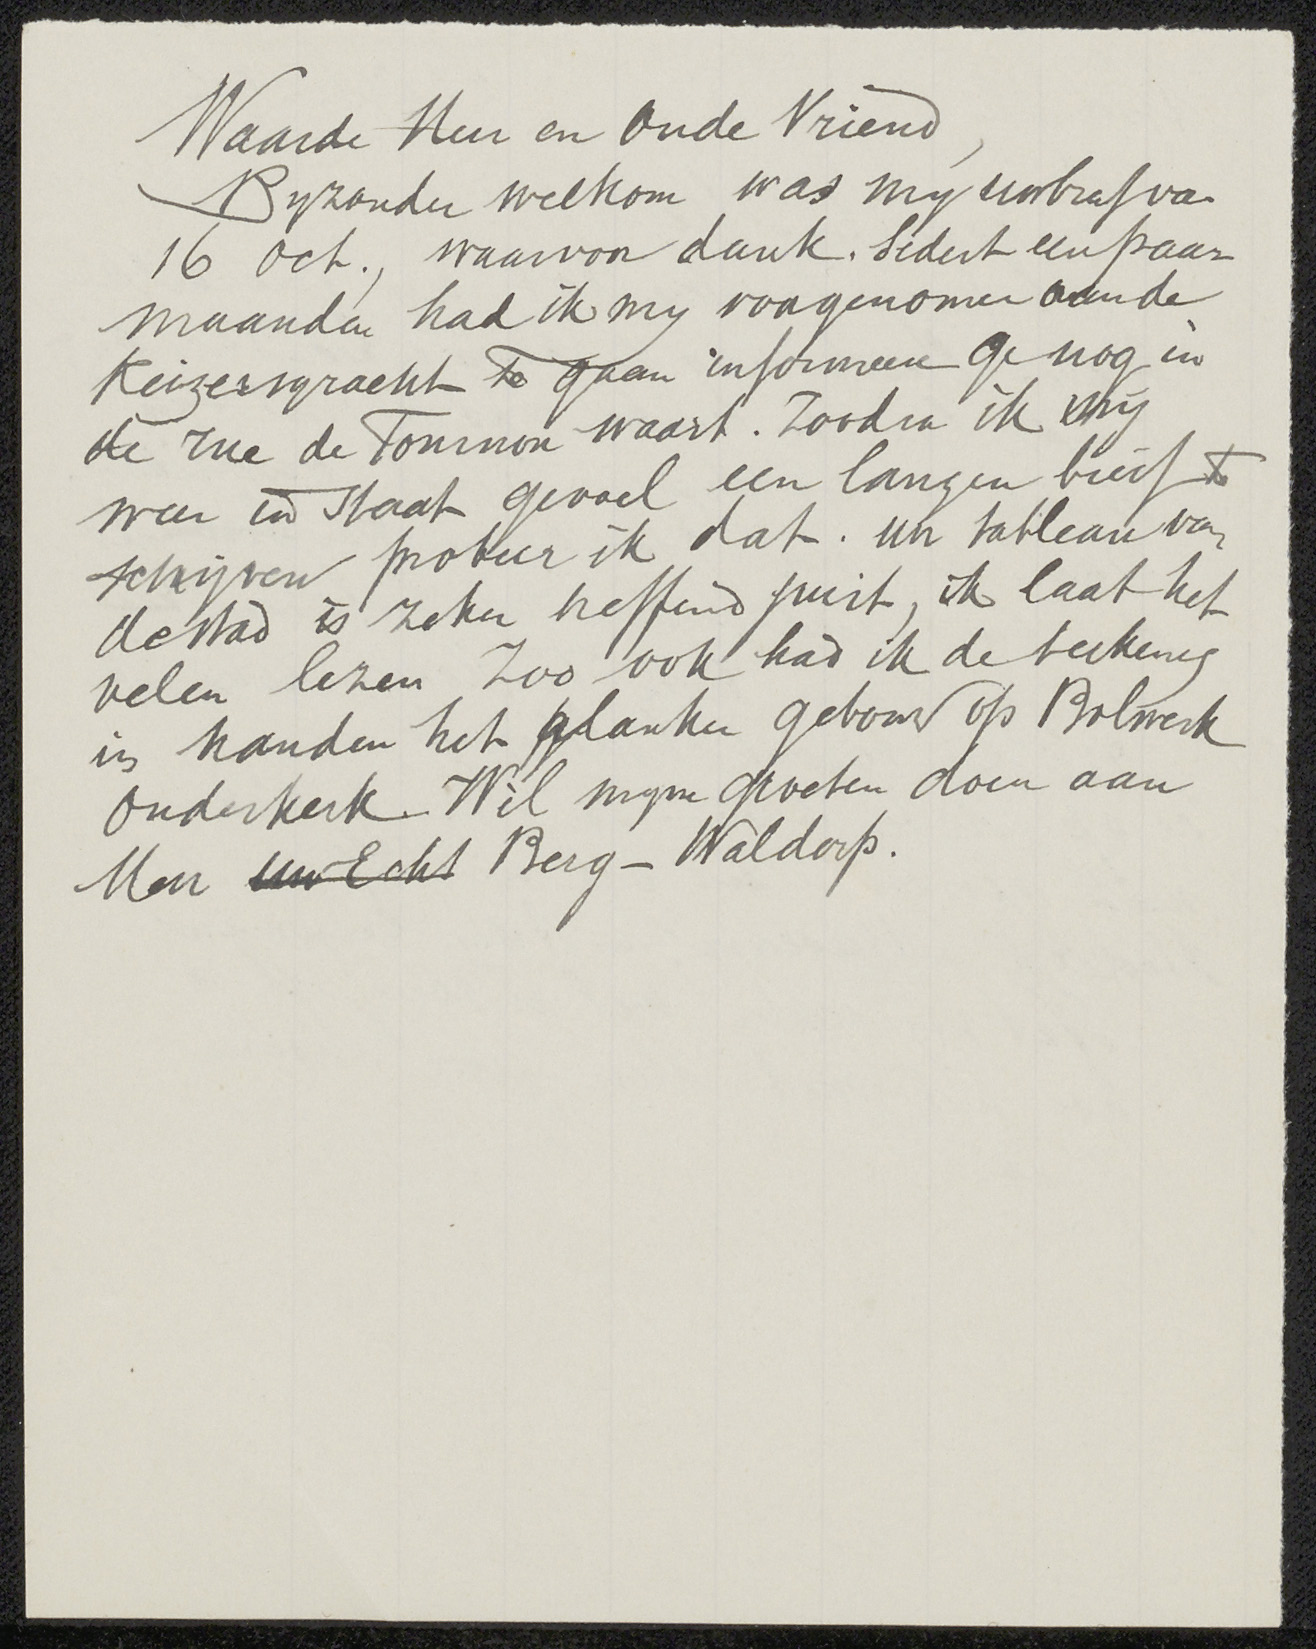 Waarde Heer en Oude Vriend,
Byzonder welkom was my uw brief van
16 Oct., waarvoor dank. Sedert een paar
maanden had ik my voorgenomen aan de
Keizersgracht te gaan informeeren ge nog in
de rue de Tournon waart. Zoodra ik my
weer in staat gevoel een langen brief te
schryven probeer ik dat. Uw tableau van
de stad is zeker treffend juist, ik laat het
velen lezen Zoo ook had ik de teekening
in handen het planken gebouw op Bolwerk
Ouderkerk. Wil myne groeten doen aan
Heer uw Echt Berg - Waldorp.